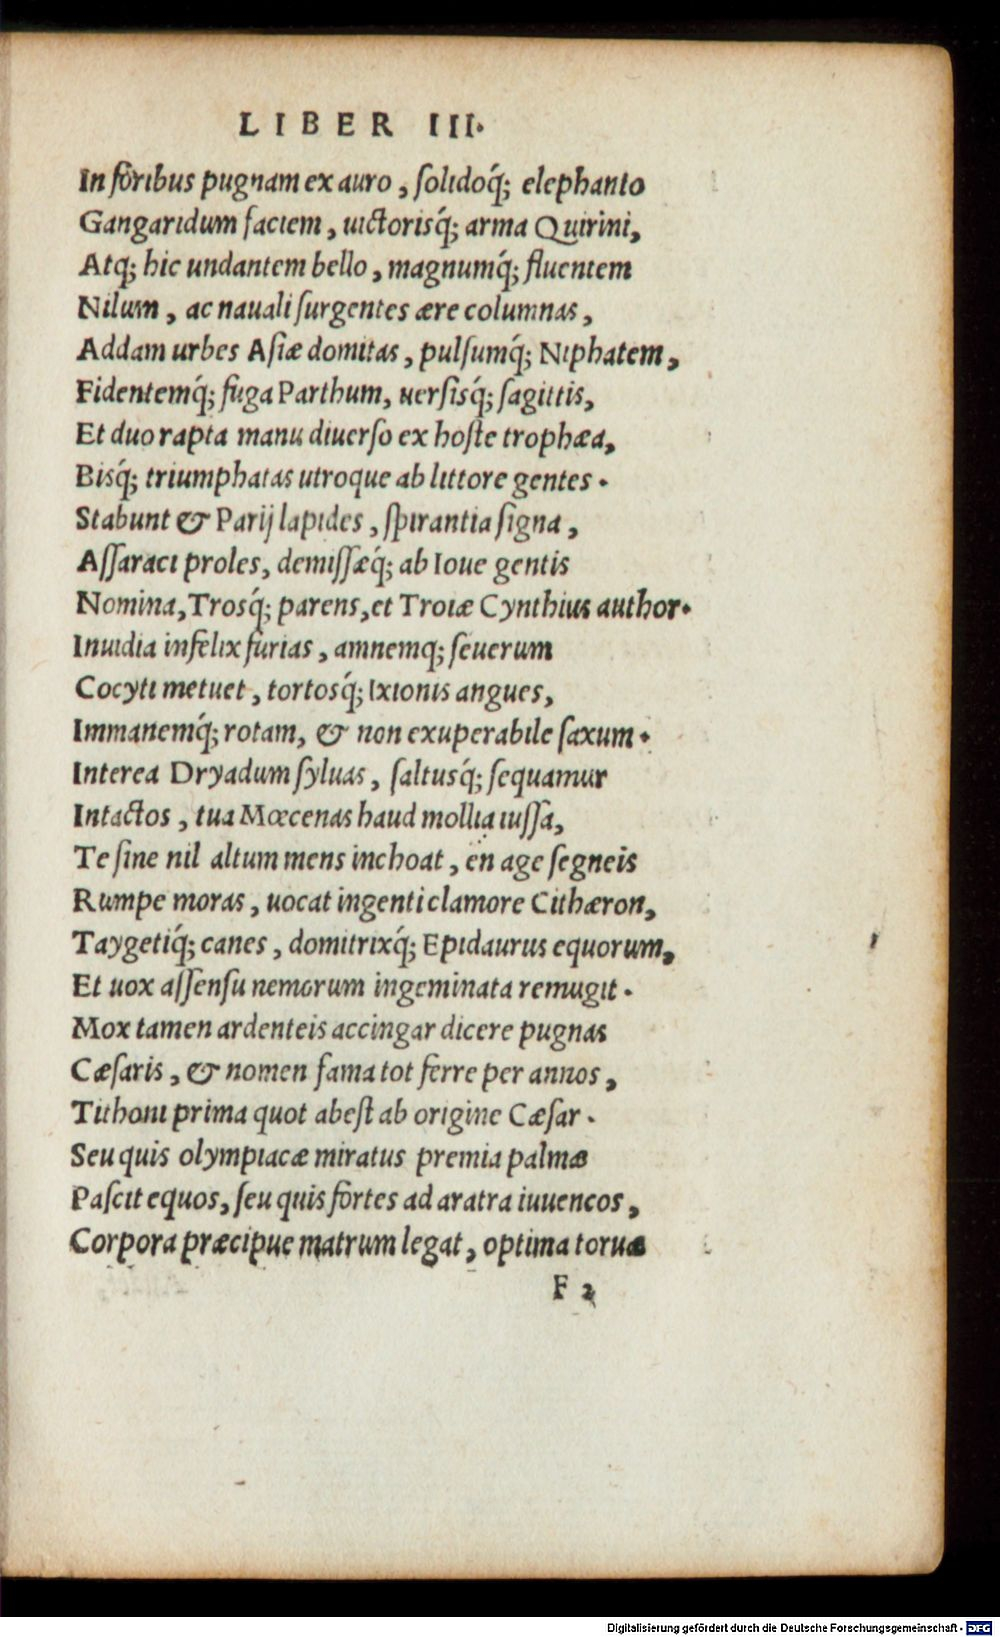 LIBER III.
In foribus pugnam ex auro, ſolidoq́; elephanto
Gangaridum faciem, uictorisq́; arma Quirini,
Atq; hic undantem bello, magnumq́; fluentem
Nilum, ac nauali ſurgentes ære columnas,
Addam urbes Aſiæ domitas, pulſumq́; Niphatem,
Fidentemq́; fuga Parthum, uerſisq́; ſagittis,
Et duo rapta manu diuerſo ex hoſte trophæa,
Bisq́; triumphatas utroque ab littore gentes.
Stabunt & Parij lapides, ſpirantia ſigna,
Aſſaraci proles, demiſſæq́; ab Ioue gentis
Nomina, Trosq́; parens, et Troiæ Cynthius author.
Inuidia infelix furias, amnemq; ſeuerum
Cocyti metuet, tortosq́; Ixionis angues,
Immanemq́; rotam, & non exuperabile ſaxum.
Interea Dryadum ſyluas, ſaltusq́; ſequamur
Intactos, tua Mœcenas haud mollia iuſſa,
Te ſine nil altum mens inchoat, en age ſegneis
Rumpe moras, uocat ingenti clamore Cithæron,
Taygetiq́; canes, domitrixq́; Epidaurus equorum,
Et uox aſſenſu nemorum ingeminata remugit.
Mox tamen ardenteis accingar dicere pugnas
Cæſaris, & nomen fama tot ferre per annos,
Tithoni prima quot abeſt ab origine Cæſar.
Seu quis olympiacæ miratus premia palmæ
Paſcit equos, ſeu quis fortes ad aratra iuuencos,
Corpora præcipue matrum legat, optima toruæ
F 2
Digitalisierung gefördert durch die Deutsche Forschungsgemeinschaft - DFG